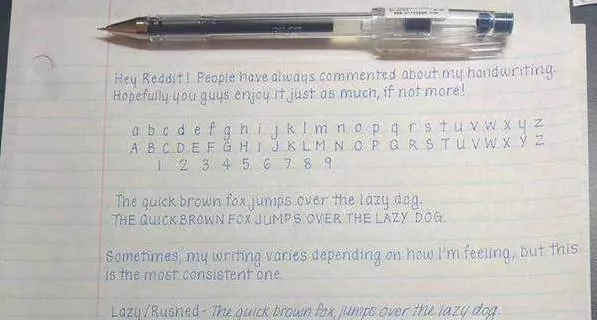 PILOT
Hey Reddit! People have always commented about my handwriting.
Hopefully you guys enjoy it just as much, if not more!
a b c d e f g h i j k l m n o p q r s t u v w x y z
A B C D E F G H I J K L M N O P Q R S T U V W X Y Z
1 2 3 4 5 6 7 8 9
The quick brown fox jumps over the lazy dog.
THE QUICK BROWN FOX JUMPS OVER THE LAZY DOG.
Sometimes, my writing varies depending on how I'm feeling, but this
is the most consistent one.
Lazy/Rushed - The quick brown fox jumps over the lazy dog.